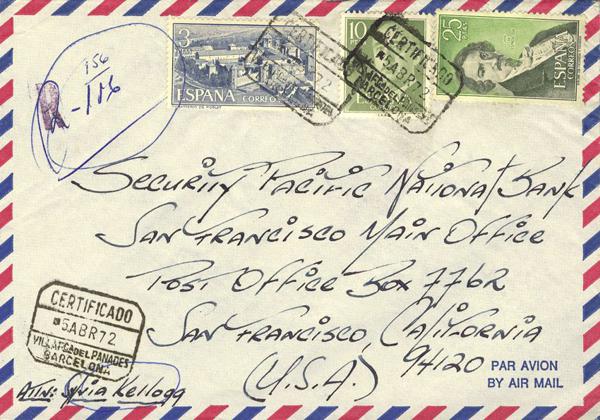 156
R-116
3
PTAS
ESPAÑA CORREOS
10
25
PTAS
ESPAÑA
CORREOS
CERTIFICADO
5ABR72
BARCELONA
Security Pacific National Bank
San Francisco Main Office
Post Office Box 7762
San Francisco, California
94120
(U.S.A.)
CERTIFICADO
*5ABR72
VILLAFCA DEL PANADES
BARCELONA
Attn: Sylvia Kellogg
PAR AVION
BY AIR MAIL